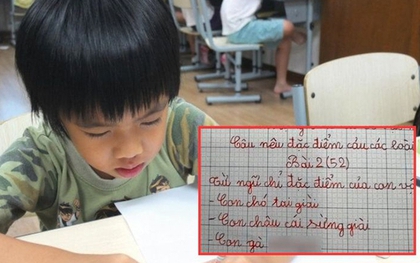 Câu nêu đặc điểm của các loài
Bài 2 (52)
Từ ngữ chỉ đặc điểm của con vậ
- Con chó tai giài
- Con châu cái sừng giài
- Con gà